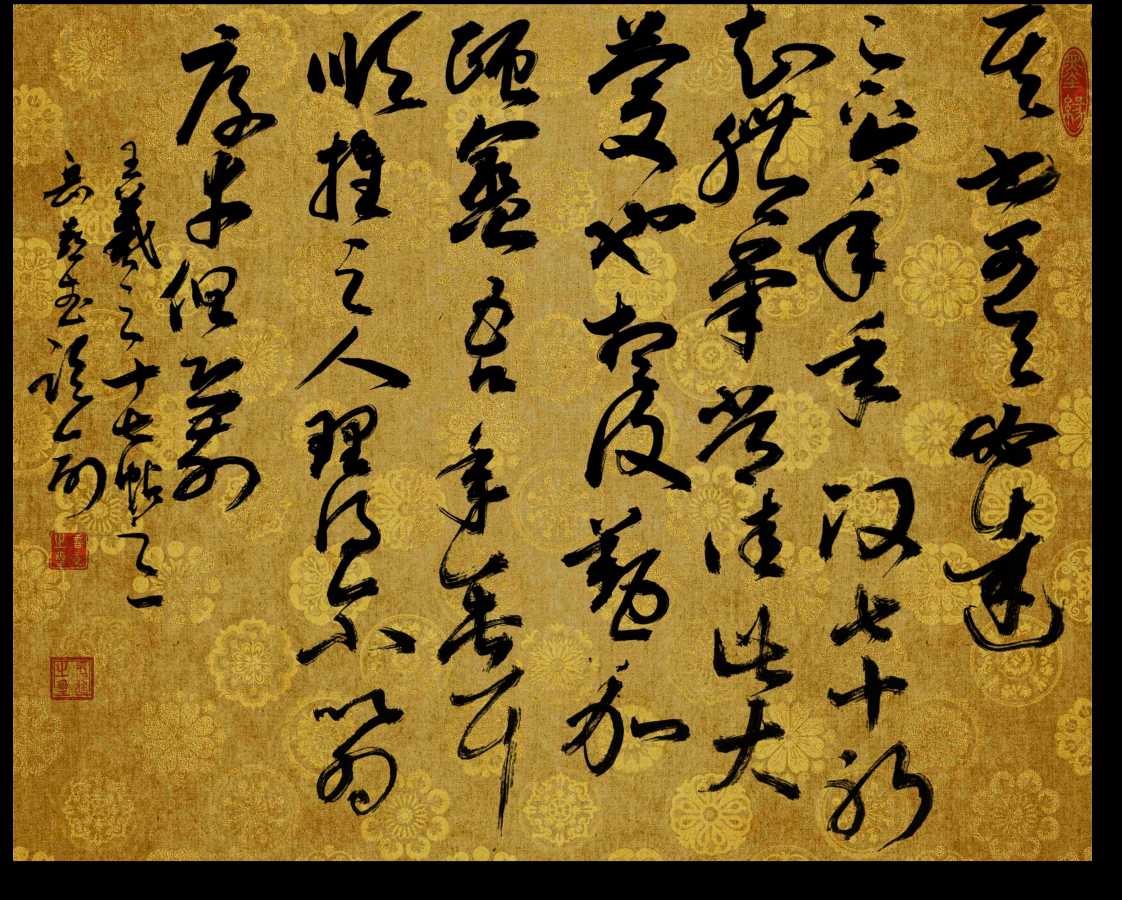 其書可令必達
足下今年政七十耶
知體氣常佳此大
慶也想復懃加
頤養吾年垂耳
順推之人理得爾以為
厚幸但恐前
王羲之十七帖之一
岳